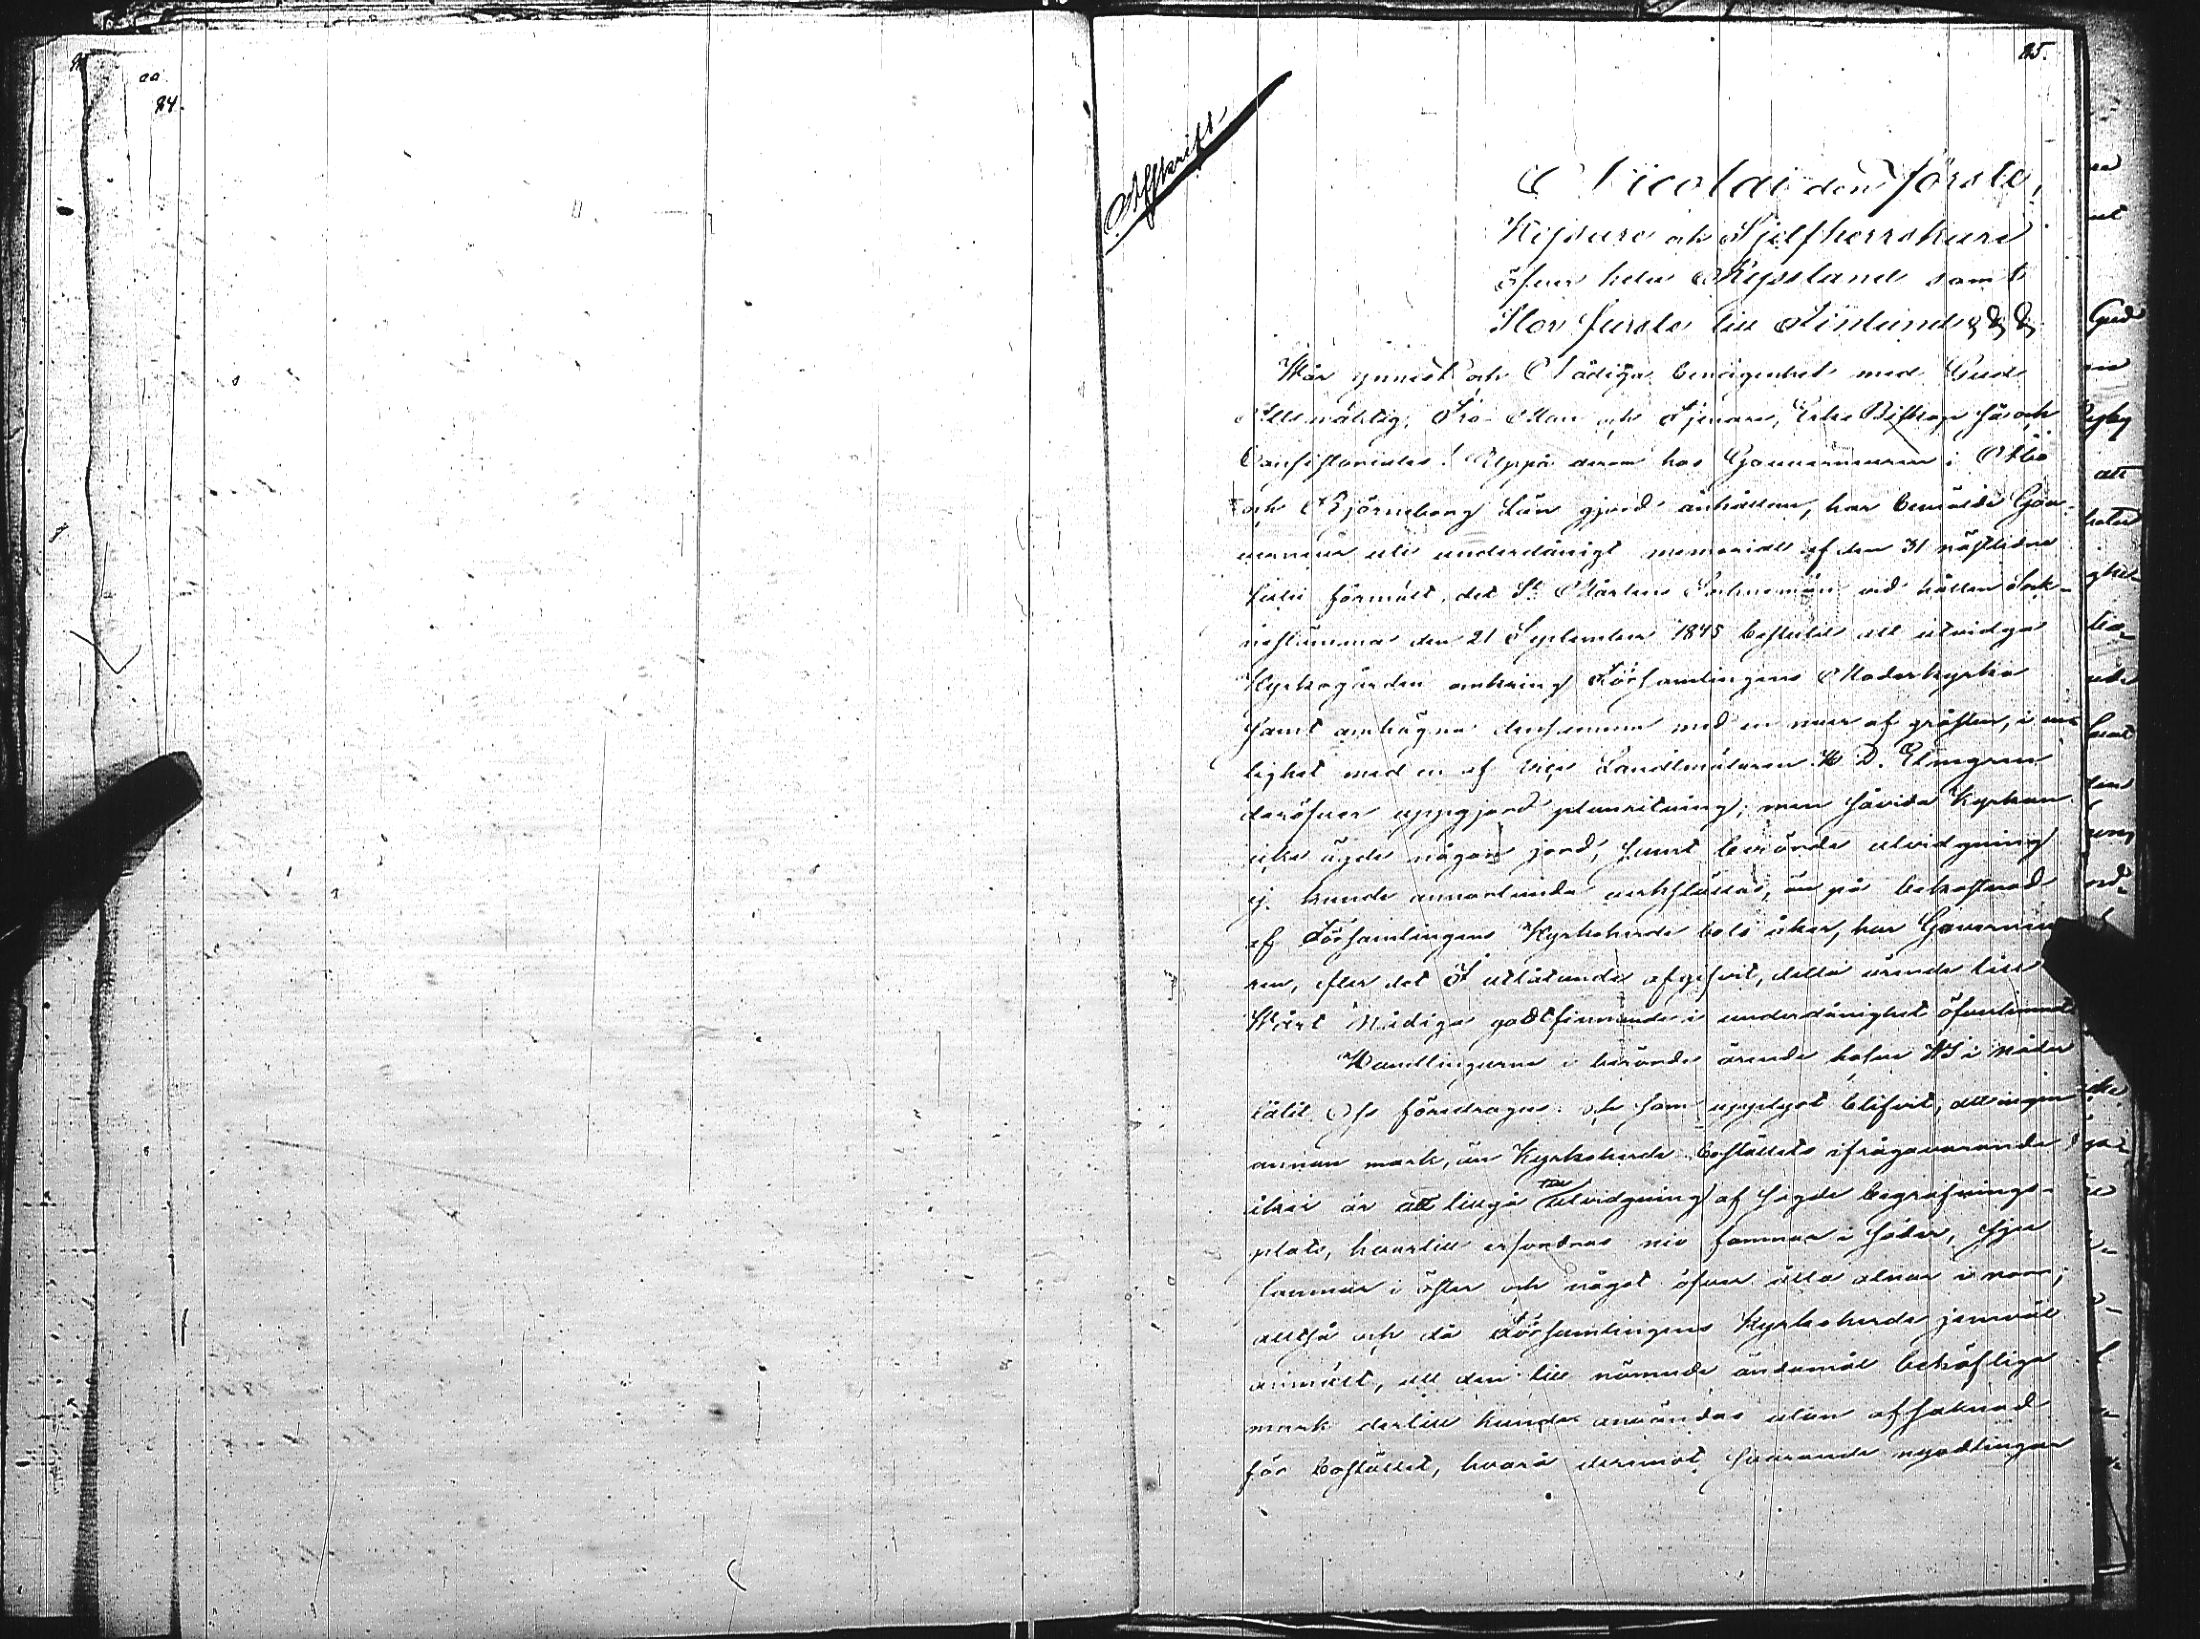 84.
85.
Afskrift
Nicolai den Förste,
Kejsare och Sjelfherrskare
öfver hela Ryssland samt
Stor Furste till Finland &c &c &c
Wår ynnest och Nådiga benägenhet med Gud
Allsmäktig, Tro Man och Tjenare, Erke Biskop så och
Consistoriales! Uppå derom hos Gouverneuren i Åbo
och Björneborg Län gjord anhållan, har bemälde Gou-
verneur uti underdånigt memorial af den 31 nästledne
Julii förmält, det St Mårtens Sockneman vid hållen Sock-
nestämma den 21 September 1845 beslutit att utvidga
Kyrkogården omkring Församlingens Moderkyrka
samt omhägna densamma med en mur af gråsten, i en-
lighet med en af Vice Landtmätaren K D. Elmgren
deröfver uppgjord planritning; men såvida Kyrkan
icke ägde någon jord, samt berörde utvidgning
ej kunde annorlunda verkställas, än på bekostnad
af Församlingens Kyrkoherde bols åker, har Gouverneu-
ren, efter det I utlåtande afgifvit, detta ärende till
Wårt Nådiga godtfinnande i underdånighet öfverlemnat
Handlingarne i berörde ärende hafve Wi i nåder
låtit Oss föredragas och som upplyst blifvit, att ingen
annan mark, än Kyrkoherde Boställets ifrågavarande
åker är att tillgå för utvidgning af sagde begrafnings-
plats, hvartill erfordras nio famnar i söder, sju
famnar i öster och något öfver åtta alnar i norr;
alltså och då Församlingens Kyrkoherde jemväl
anmält, att den till nämnde ändamål behöfliga
mark dertill kunde användas utan afsaknad
för Bostället, hvarå deremot svarande nyodlingar
Gud
att